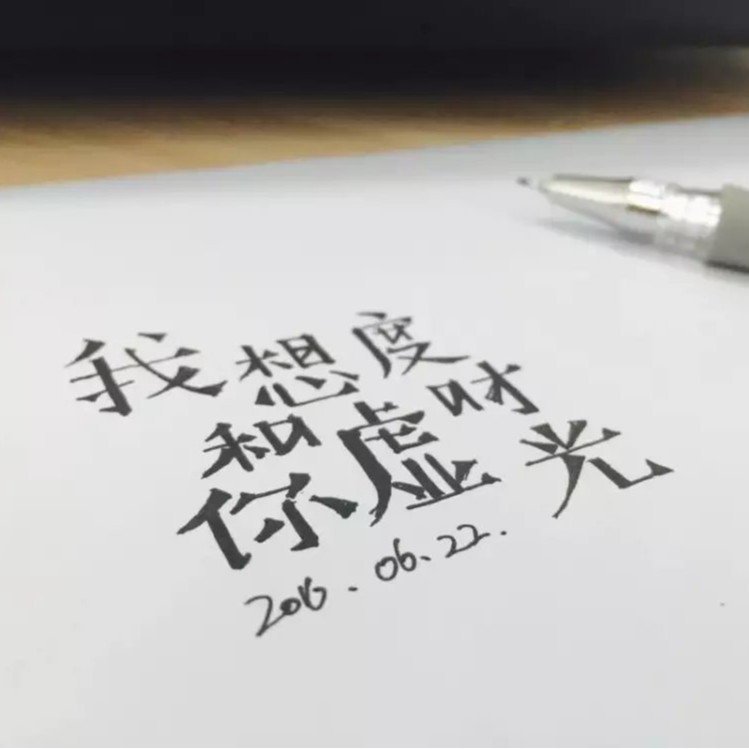 我想
和你
虚度
时光
2016.06.22.